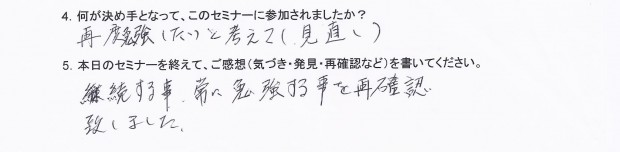 4. 何が決め手となって、このセミナーに参加されましたか？
再度勉強したいと考えて（見直し）
5. 本日のセミナーを終えて、ご感想（気づき・発見・再確認など）を書いてください。
継続する事、常に勉強する事を再確認
致しました。